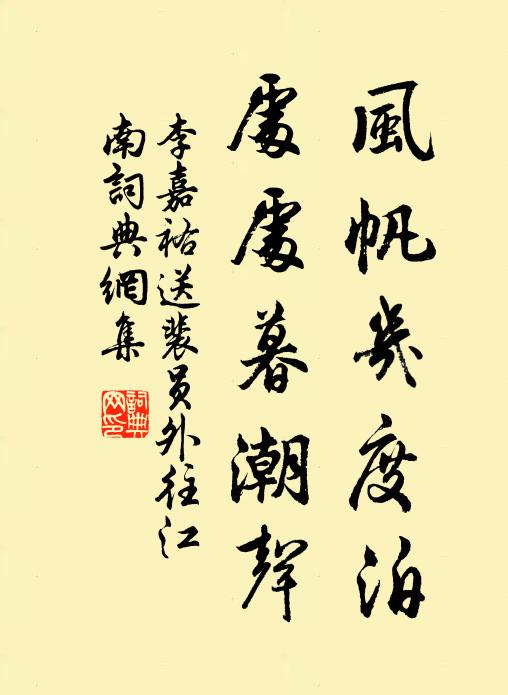 風帆幾度泊
處處暮潮聲
李嘉祐送裴员外往江
南詞典網集
詞典
网印